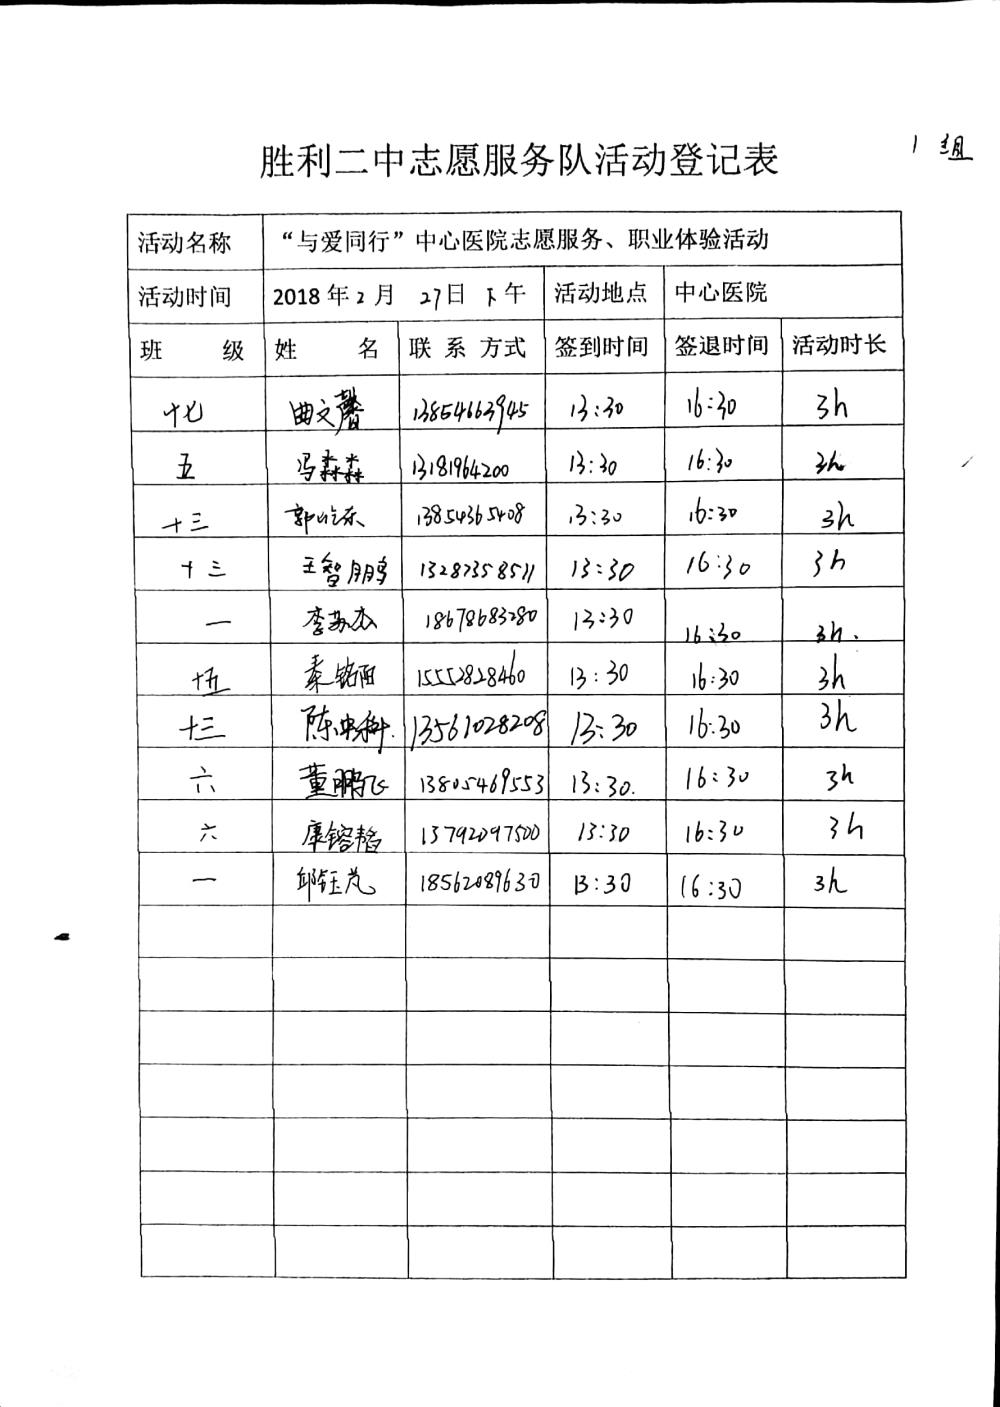 1组
胜利二中志愿服务队活动登记表
活动名称 “与爱同行”中心医院志愿服务、职业体验活动
活动时间 2018年2月 27日 下午 活动地点 中心医院
班 级 姓 名 联系方式 签到时间 签退时间 活动时长
十七 曲文馨 13854663945 13:30 16:30 3h
五 冯淼淼 13181964200 13:30 16:30 3h
十三 郭屹东 13854365408 13:30 16:30 3h
十三 王智鹏 13287358511 13:30 16:30 3h
一 李苏杰 18678683280 13:30 16:30 3h.
十五 秦铭阳 15552828460 13:30 16:30 3h
十三 陈冲科 13561028208 13:30 16:30 3h
六 董鹏飞 13805469553 13:30. 16:30 3h
六 康镕韬 13792097500 13:30 16:30 3h
一 邱钰岚 18562089630 13:30 16:30 3h